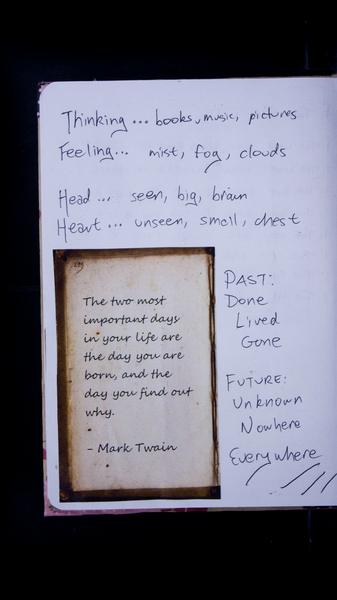 Thinking ... books, music, pictures
Feeling... mist, fog, clouds
Head ... seen, big, brain
Heart ... unseen, small, chest
The two most
important days
in your life are
the day you are
born, and the
day you find out
why.
- Mark Twain
PAST:
Done
Lived
Gone
FUTURE:
Unknown
Nowhere
Everywhere